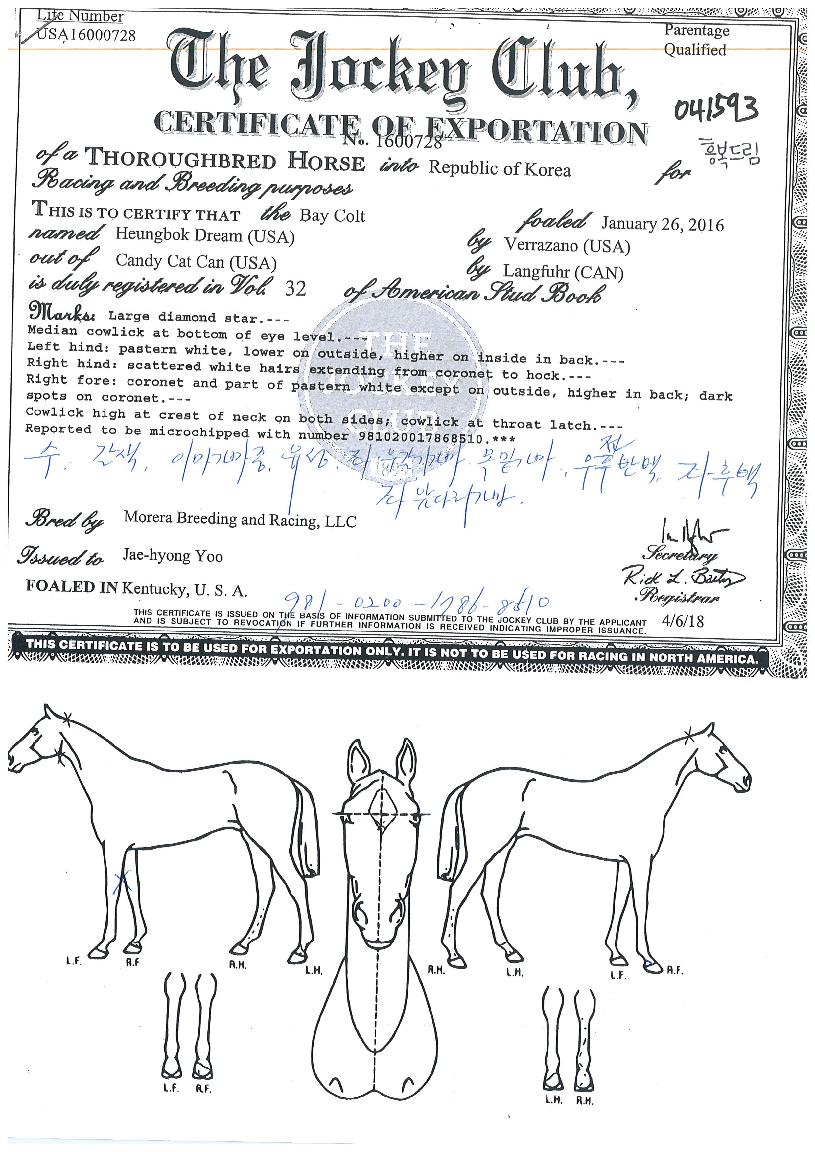 Life Number
USA16000728
Parentage
Qualified
The Jockey Club,
CERTIFICATE OF EXPORTATION
No. 1600728
041593
흥복드림
of a THOROUGHBRED HORSE into Republic of Korea for
Racing and Breeding purposes
THIS IS TO CERTIFY THAT the Bay Colt foaled January 26, 2016
named Heungbok Dream (USA) by Verrazano (USA)
out of Candy Cat Can (USA) by Langfuhr (CAN)
is duly registered in Vol. 32 of American Stud Book
Marks: Large diamond star.---
Median cowlick at bottom of eye level.---
Left hind: pastern white, lower on outside, higher on inside in back.---
Right hind: scattered white hairs extending from coronet to hock.---
Right fore: coronet and part of pastern white except on outside, higher in back; dark
spots on coronet.---
Cowlick high at crest of neck on both sides; cowlick at throat latch.---
Reported to be microchipped with number 981020017868510.***
THE
JOCKEY
CLUB
수. 갈색. 유성 우 반백, 좌후백
Bred by Morera Breeding and Racing, LLC
Issued to Jae-hyong Yoo
Secretary
Registrar
FOALED IN Kentucky, U. S. A.
981-0200-1786-8510
THIS CERTIFICATE IS ISSUED ON THE BASIS OF INFORMATION SUBMITTED TO THE JOCKEY CLUB BY THE APPLICANT
AND IS SUBJECT TO REVOCATION IF FURTHER INFORMATION IS RECEIVED INDICATING IMPROPER ISSUANCE.
4/6/18
THIS CERTIFICATE IS TO BE USED FOR EXPORTATION ONLY. IT IS NOT TO BE USED FOR RACING IN NORTH AMERICA.
L.F. R.F R.H. L.H. R.H. L.H. L.F. R.F.
L.F. R.F. L.H. R.H.